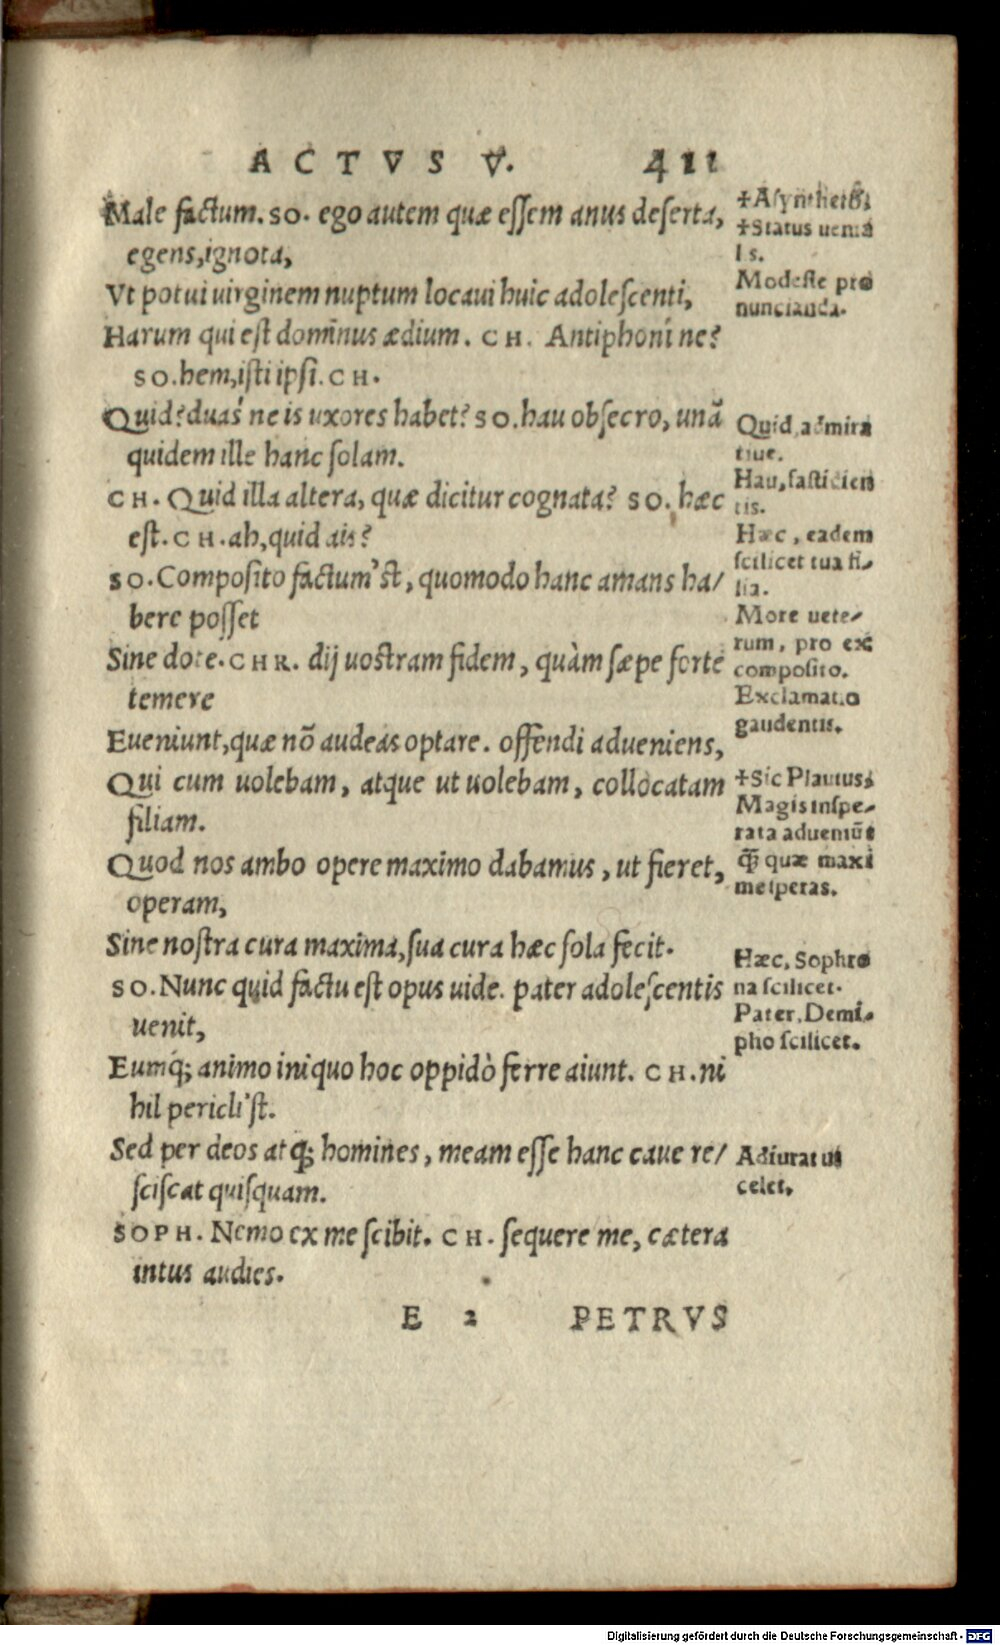 ACTVS V. 411
Male factum. SO. ego autem quæ essem anus deserta,
egens, ignota,
Vt potui uirginem nuptum locaui huic adolescenti,
Harum qui est dominus ædium. CH. Antiphoní ne?
SO. hem, isti ipsi. CH.
Quid? duas' ne is uxores habet? SO. hau obsecro, unã
quidem ille hanc solam.
CH. Quid illa altera, quæ dicitur cognata? SO. hæc
est. CH. ah, quid ais?
SO. Composito factum'st, quomodo hanc amans ha/
bere posset
Sine dote. CHR. dij uostram fidem, quàm sæpe forte
temere
Eueniunt, quæ nõ audeas optare. offendi adueniens,
Qui cum uolebam, atque ut uolebam, collocatam
filiam.
Quod nos ambo opere maximo dabamus, ut fieret,
operam,
Sine nostra cura maxima, sua cura hæc sola fecit.
SO. Nunc quid factu est opus uide. pater adolescentis
uenit,
Eumq́; animo iniquo hoc oppidò ferre aiunt. CH. ni
hil pericli'st.
Sed per deos atq́; homines, meam esse hanc caue re/
sciscat quisquam.
SOPH. Nemo ex me scibit. CH. sequere me, cætera
intus audies.
E 2 PETRVS
+Status uenia
ls.
Modeste pro
nuncianda.
Quid, admira
tiue.
Hau, fastidien
tis.
Hæc, eadem
scilicet tua fi-
lia.
More uete-
rum, pro ex
composito.
Exclamatio
gaudentis.
+Sic Plautus;
Magis inspe-
rata adueniũt
q̃ quæ maxi
me speras.
Hæc, Sophro
na scilicet.
Pater, Demi-
pho scilicet.
Adiuratus
celet.
Digitalisierung gefördert durch die Deutsche Forschungsgemeinschaft - DFG